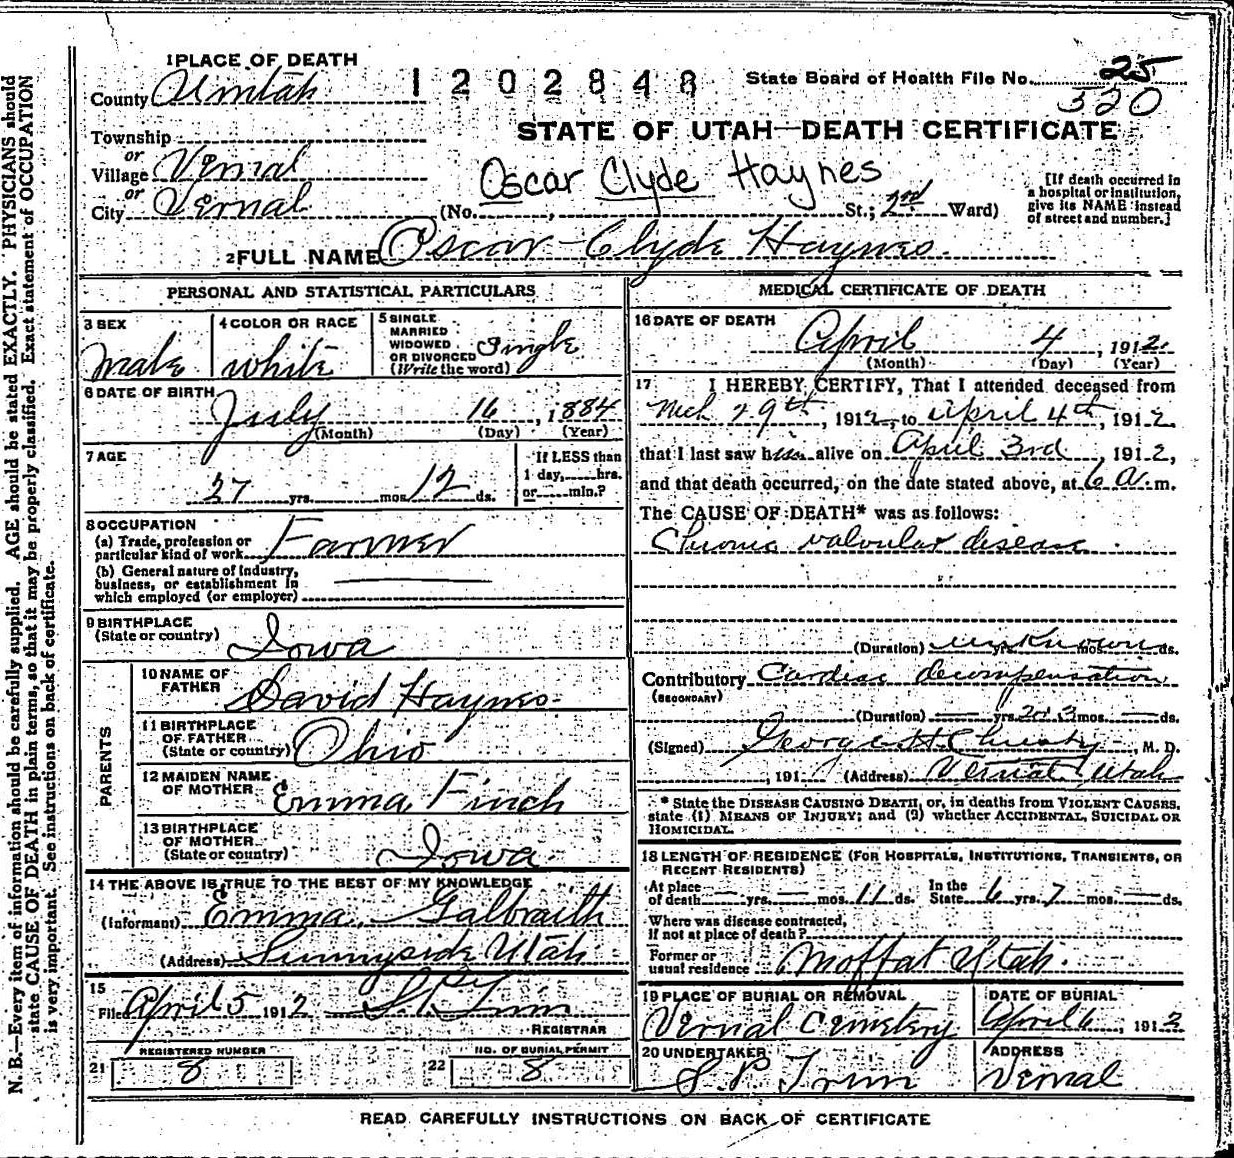 1 PLACE OF DEATH
1202848
State Board of Health File No. 25
320
County Uintah
STATE OF UTAH—DEATH CERTIFICATE
Township
or
Village Vernal
Oscar Clyde Haynes
[If death occurred in a hospital or institution, give its NAME instead of street and number.]
or
City Vernal (No. , St.; 2nd Ward)
2 FULL NAME Oscar Clyde Haynes
PERSONAL AND STATISTICAL PARTICULARS
3 SEX
male
4 COLOR OR RACE
white
5 SINGLE
MARRIED
WIDOWED
OR DIVORCED
(Write the word)
Single
6 DATE OF BIRTH
July 16, 1884
(Month) (Day) (Year)
7 AGE
27 yrs. mos. 12 ds.
If LESS than
1 day, hrs.
or min.?
8 OCCUPATION
(a) Trade, profession or
particular kind of work Farmer
(b) General nature of Industry,
business, or establishment in
which employed (or employer)
9 BIRTHPLACE
(State or country) Iowa
PARENTS
10 NAME OF
FATHER David Haynes
11 BIRTHPLACE
OF FATHER
(State or country) Ohio
12 MAIDEN NAME
OF MOTHER Emma Finch
13 BIRTHPLACE
OF MOTHER
(State or country) Iowa
14 THE ABOVE IS TRUE TO THE BEST OF MY KNOWLEDGE
(Informant) Emma Galbraith
(Address) Sunnyside Utah
15
Filed April 5 1912
REGISTRAR
REGISTERED NUMBER
21 8
NO. OF BURIAL PERMIT
22 8
MEDICAL CERTIFICATE OF DEATH
16 DATE OF DEATH
April 4, 1912
(Month) (Day) (Year)
17 I HEREBY CERTIFY, That I attended deceased from
Mch 29th, 1912, to April 4th, 1912
that I last saw him alive on April 3rd, 1912,
and that death occurred, on the date stated above, at 6 A. m.
The CAUSE OF DEATH* was as follows:
Chronic valvular disease
(Duration) unknown yrs. mos. ds.
Contributory Cardiac decompensation
(SECONDARY)
(Duration) — yrs. 2 or 3 mos. — ds.
(Signed) George H. Christy, M. D.
, 191 (Address) Vernal Utah
* State the DISEASE CAUSING DEATH, or, in deaths from VIOLENT CAUSES,
state (1) MEANS OF INJURY; and (2) whether ACCIDENTAL, SUICIDAL OR
HOMICIDAL.
18 LENGTH OF RESIDENCE (FOR HOSPITALS, INSTITUTIONS, TRANSIENTS, OR
RECENT RESIDENTS)
At place
of death — yrs. — mos. 11 ds. In the
State 6 yrs. 7 mos. — ds.
Where was disease contracted,
If not at place of death?
Former or
usual residence Moffat Utah.
19 PLACE OF BURIAL OR REMOVAL
Vernal Cemetery
DATE OF BURIAL
April 6, 1912
20 UNDERTAKER
S. P. Trim
ADDRESS
Vernal
READ CAREFULLY INSTRUCTIONS ON BACK OF CERTIFICATE
N. B.—Every item of information should be carefully supplied. AGE should be stated EXACTLY. PHYSICIANS should
state CAUSE OF DEATH in plain terms, so that it may be properly classified. Exact statement of OCCUPATION
is very important. See instructions on back of certificate.